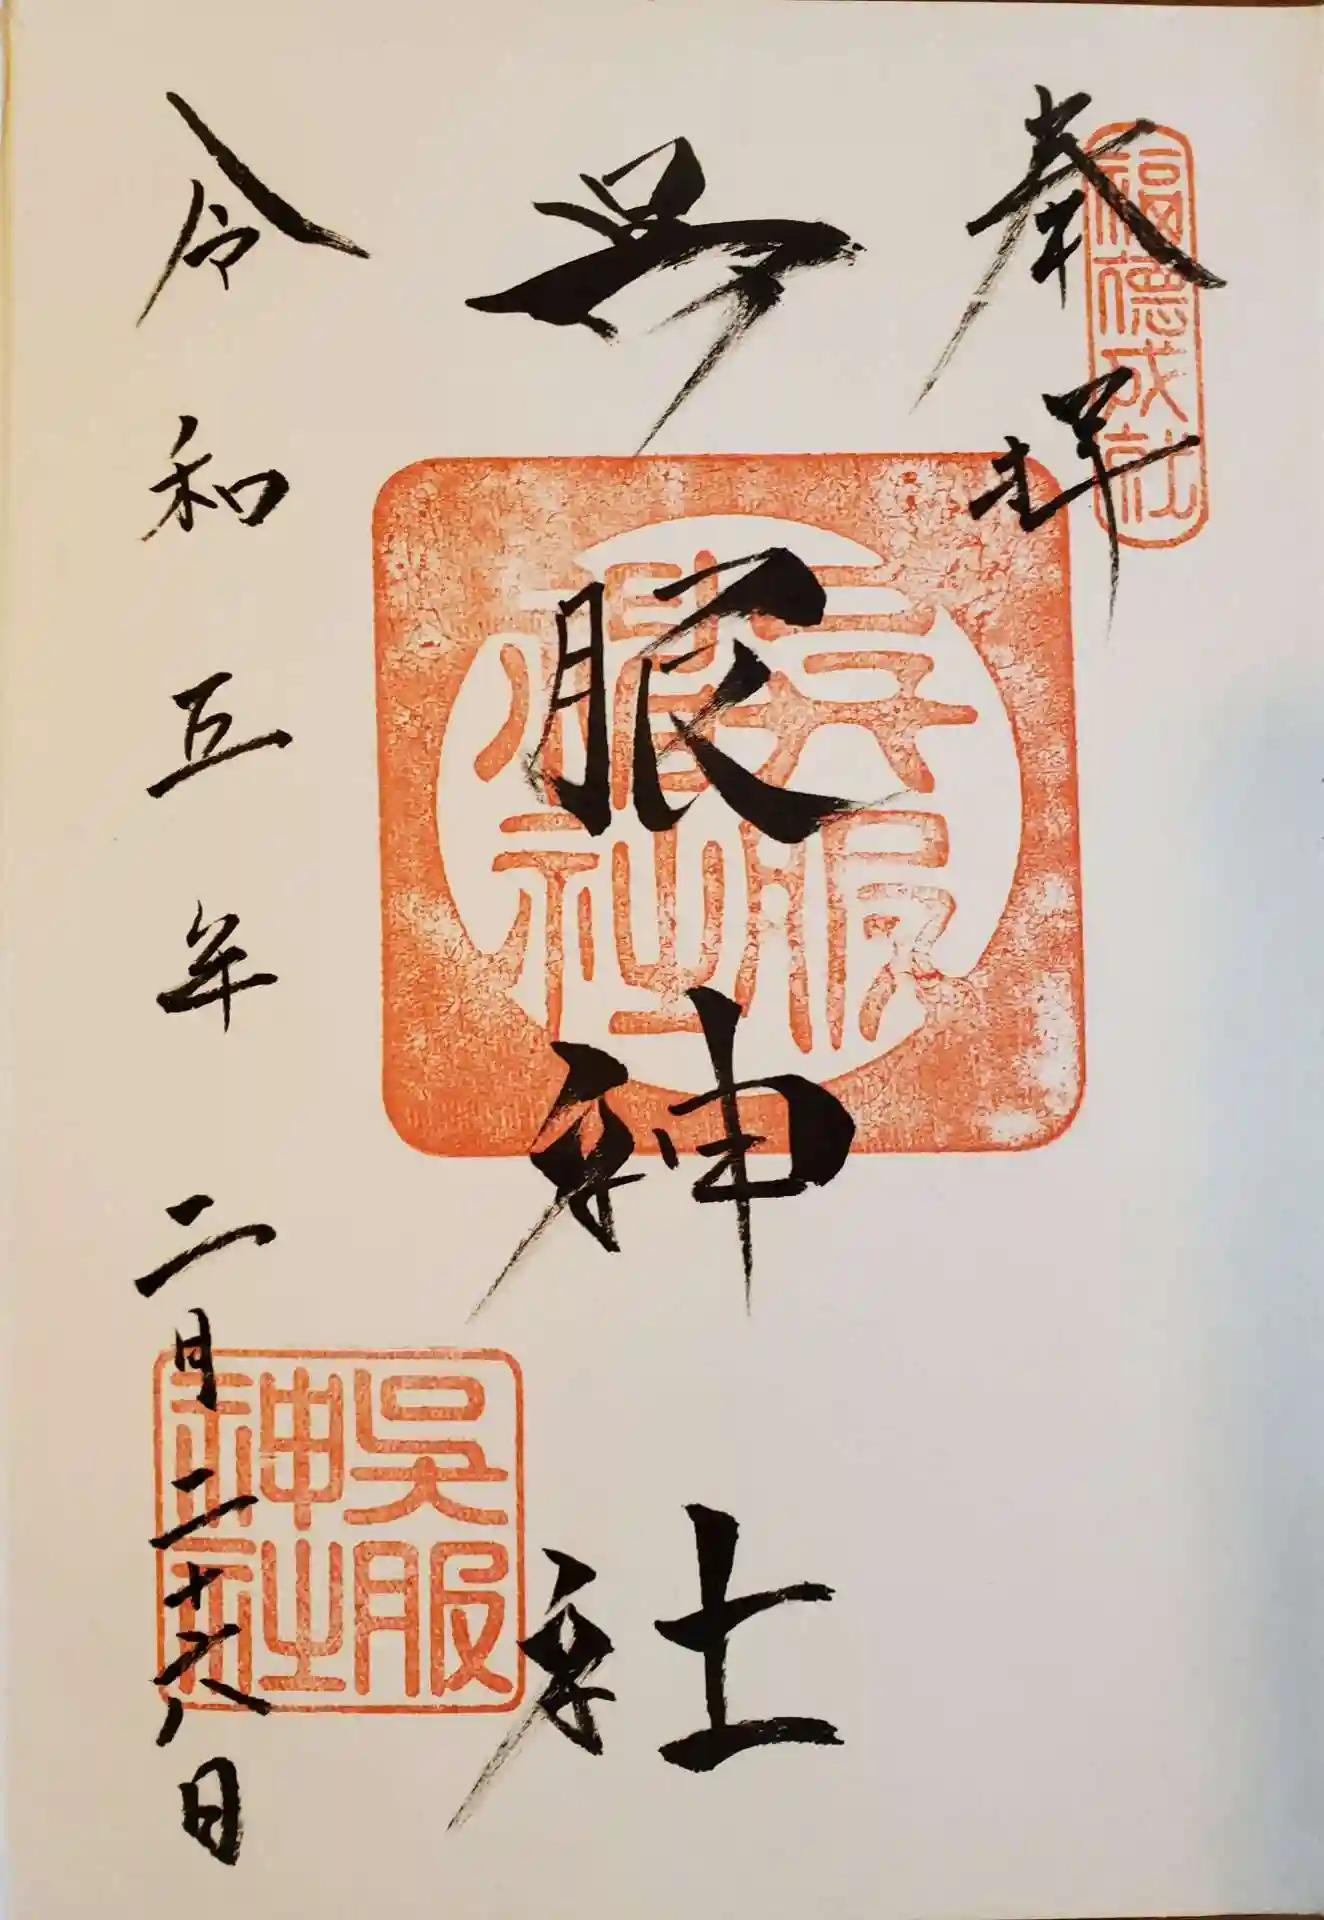 奉拝
福徳成社
呉服神社
呉服
神社
令和五年二月二十六日
呉服
神社